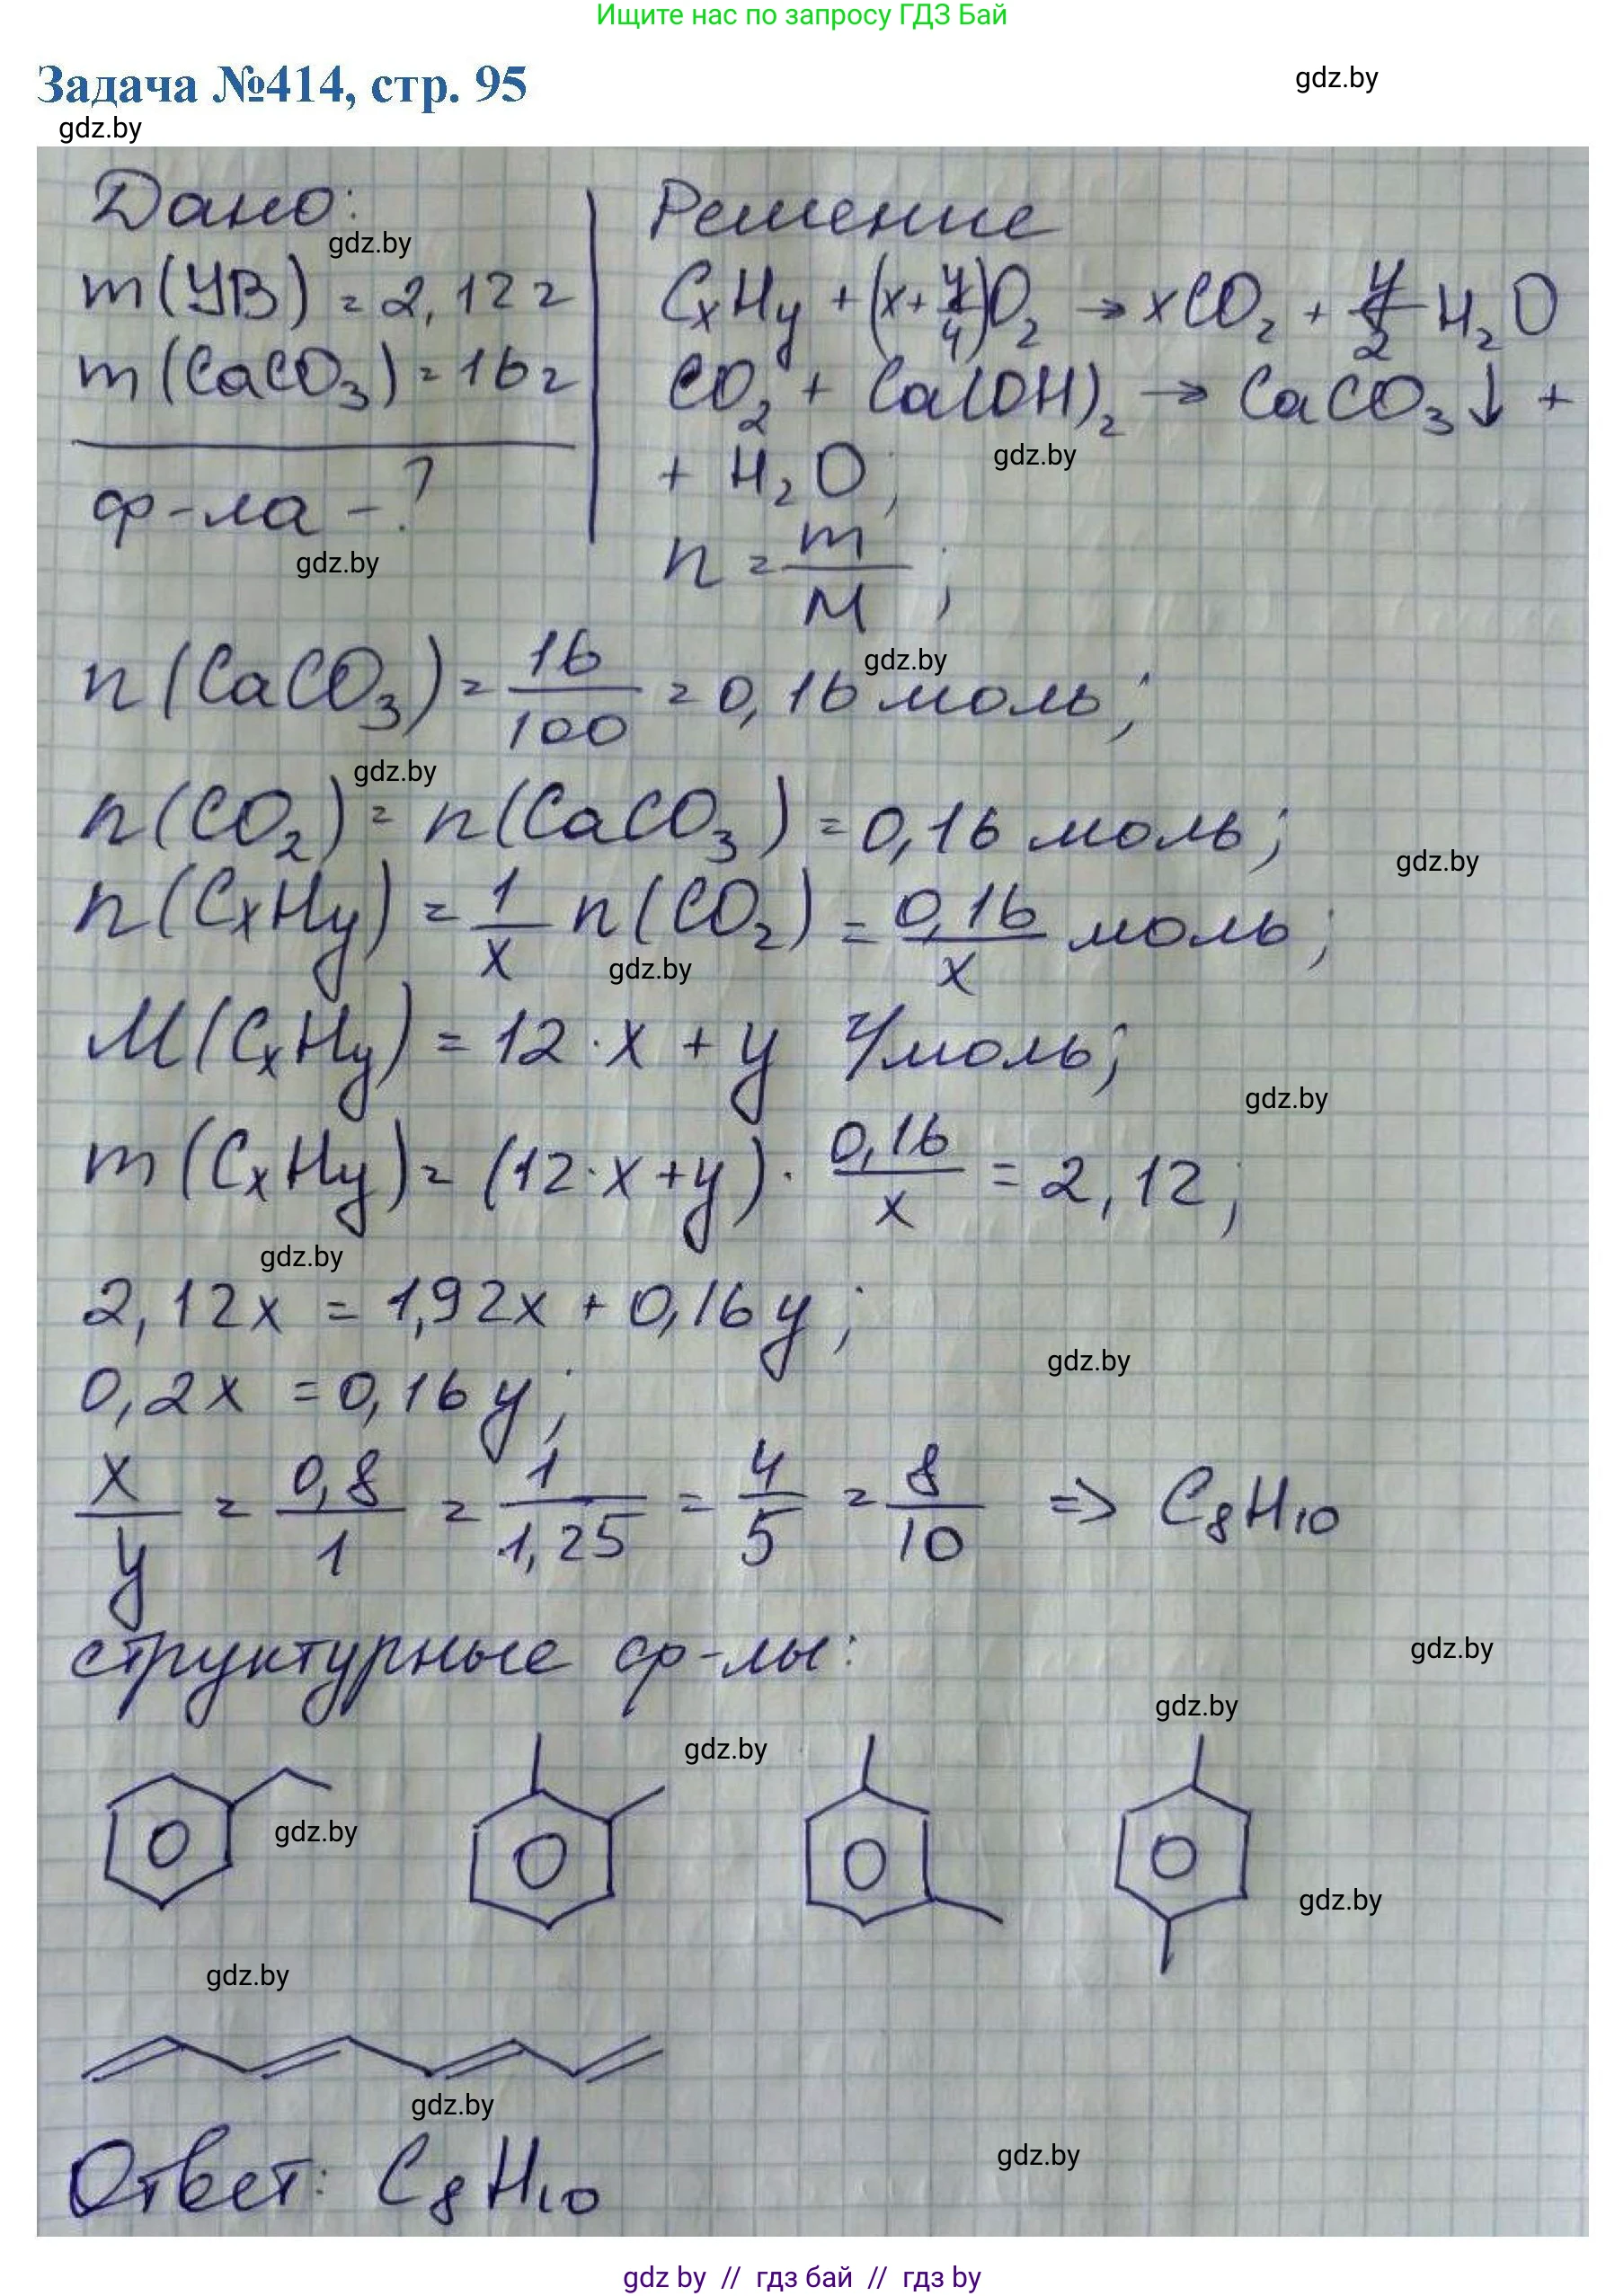 Ищите нас по запросу ГДЗ Бай
Задача №414, стр. 95
gdz.by
gdz.by
Дано:
gdz.by
m(УВ) = 2,12 г
m(CaCO₃) = 16 г
ф-ла - ?
gdz.by
Решение
CₓHᵧ + (x + y/4)O₂ → xCO₂ + y/2 H₂O
CO₂ + Ca(OH)₂ → CaCO₃↓ +
gdz.by
+ H₂O;
n = m/M;
gdz.by
n(CaCO₃) = 16/100 = 0,16 моль;
gdz.by
n(CO₂) = n(CaCO₃) = 0,16 моль;
gdz.by
n(CₓHᵧ) = 1/x n(CO₂) = 0,16/x моль;
gdz.by
M(CₓHᵧ) = 12·x + y г/моль;
gdz.by
m(CₓHᵧ) = (12·x + y) · 0,16/x = 2,12;
gdz.by
2,12x = 1,92x + 0,16y;
gdz.by
0,2x = 0,16y;
x/y = 0,8/1 = 1/1,25 = 4/5 = 8/10 => C₈H₁₀
структурные ф-лы:
gdz.by
gdz.by
gdz.by
gdz.by
gdz.by
gdz.by
gdz.by
gdz.by
Ответ: C₈H₁₀
gdz by // гдз бай // гдз by